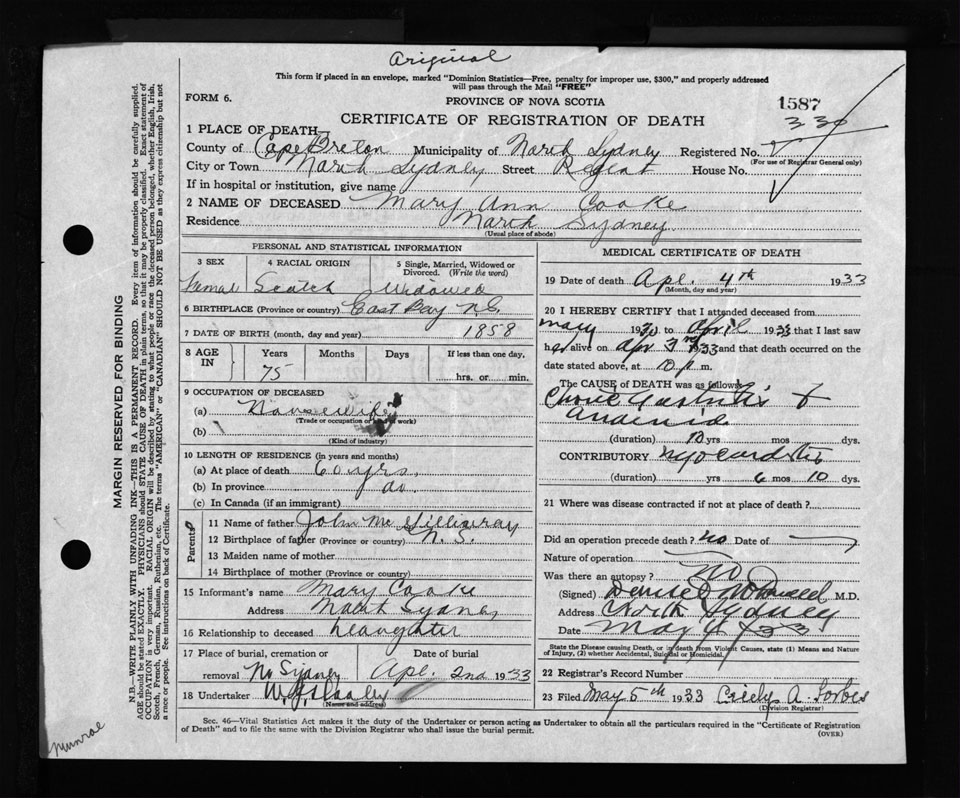 Original
This form if placed in an envelope, marked "Dominion Statistics—Free, penalty for improper use, $300," and properly addressed
will pass through the Mail "FREE"
FORM 6.
PROVINCE OF NOVA SCOTIA
1587
330
CERTIFICATE OF REGISTRATION OF DEATH
1 PLACE OF DEATH
County of Cape Breton Municipality of North Sydney Registered No.
(For use of Registrar General only)
City or Town North Sydney Street Regent House No.
If in hospital or institution, give name
2 NAME OF DECEASED Mary Ann Cooke
Residence North Sydney
(Usual place of abode)
PERSONAL AND STATISTICAL INFORMATION
3 SEX 4 RACIAL ORIGIN 5 Single, Married, Widowed or Divorced. (Write the word)
Femal Scotch Widowed
6 BIRTHPLACE (Province or country) East Bay N.S.
7 DATE OF BIRTH (month, day and year) 1858
8 AGE IN Years Months Days If less than one day.
75 hrs. or min.
9 OCCUPATION OF DECEASED
(a) Housewife
(Trade or occupation or kind of work)
(b)
(Kind of industry)
10 LENGTH OF RESIDENCE (in years and months)
(a) At place of death 60 yrs.
(b) In province do.
(c) In Canada (if an immigrant)
Parents
11 Name of father John Mc Gillivray
12 Birthplace of father (Province or country) N.S.
13 Maiden name of mother
14 Birthplace of mother (Province or country)
15 Informant's name Mary Cooke
Address North Sydney
16 Relationship to deceased Daughter
17 Place of burial, cremation or removal No Sydney Date of burial Apl. 2nd 1933
18 Undertaker
(Name and address)
MEDICAL CERTIFICATE OF DEATH
19 Date of death Apl. 4th 1933
(Month, day and year)
20 I HEREBY CERTIFY that I attended deceased from
1930 to April 1933 that I last saw
her alive on Apr 3rd 1933 and that death occurred on the
date stated above, at 10 p. m.
The CAUSE OF DEATH was as follows
Gastritis &
(duration) 10 yrs mos dys.
CONTRIBUTORY Myocarditis
(duration) yrs 6 mos 10 dys.
21 Where was disease contracted if not at place of death?
Did an operation precede death? no Date of
Nature of operation
Was there an autopsy? No
(Signed) M.D.
Address North Sydney
Date May 4/33
State the Disease causing Death, or in death from Violent Causes, state (1) Means and Nature
of Injury, (2) whether Accidental, Suicidal or Homicidal.
22 Registrar's Record Number
23 Filed May 5th 1933 Cicely A. Forbes
(Division Registrar)
Sec. 46—Vital Statistics Act makes it the duty of the Undertaker or person acting as Undertaker to obtain all the particulars required in the "Certificate of Registration
of Death" and to file the same with the Division Registrar who shall issue the burial permit.
(OVER)
MARGIN RESERVED FOR BINDING
N.B.—WRITE PLAINLY WITH UNFADING INK—THIS IS A PERMANENT RECORD. Every item of information should be carefully supplied.
AGE should be stated EXACTLY. PHYSICIANS should STATE CAUSE OF DEATH in plain terms, so that it may be properly classified. Exact statement of
OCCUPATION is very important. RACIAL ORIGIN will be described by stating to what people or race the deceased person belonged, whether English, Irish,
Scotch, French, German, Russian, Ruthenian, etc. The terms "AMERICAN" or "CANADIAN" SHOULD NOT BE USED as they express citizenship but not
a race or people. See instructions on back of Certificate.
Munroe